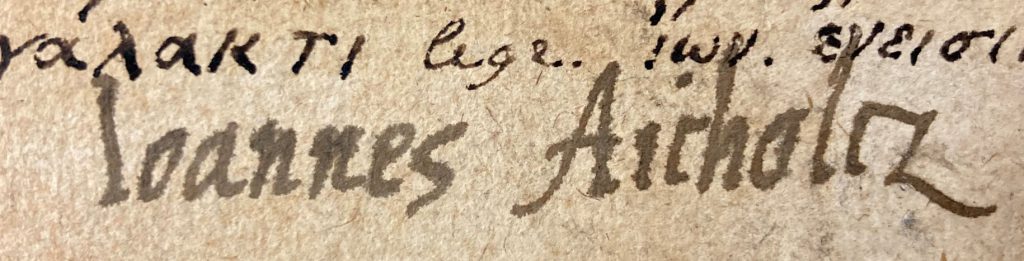 γαλακτι lege. ἴων. ενεισι
Ioannes Aicholtz